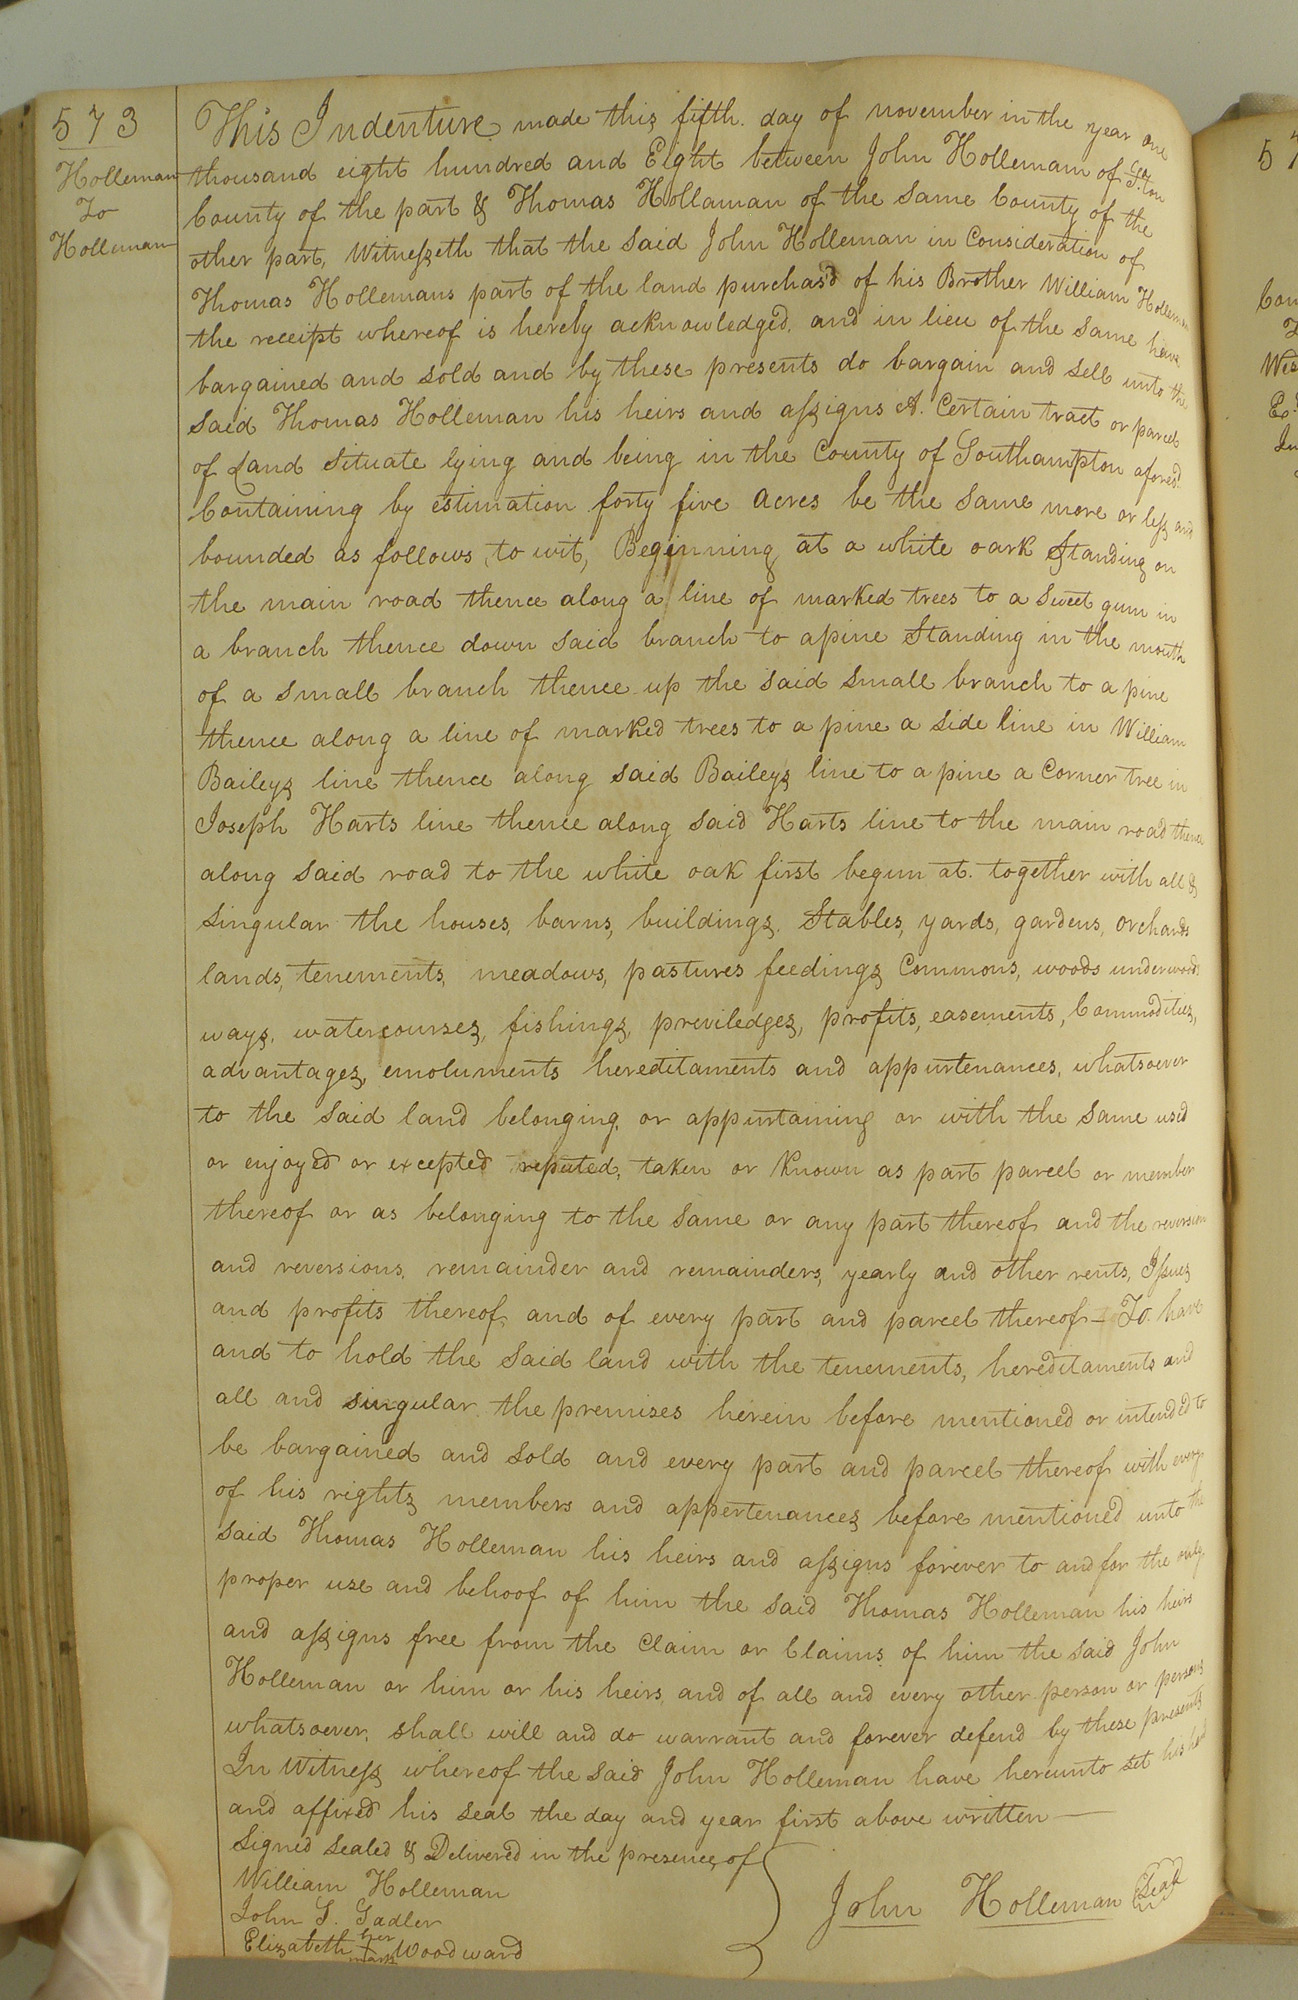 573
Holleman
To
Holleman
This Indenture made this fifth. day of november in the year one
thousand eight hundred and Eight between John Holleman of S.ton
County of the part & Thomas Hollaman of the same County of the
other part, Witnesseth that the said John Holleman in Consideration of
Thomas Hollemans part of the land purchas'd of his Brother William Holleman
the receipt whereof is hereby acknowledged, and in lieu of the same have
bargained and sold and by these presents do bargain and sell unto the
said Thomas Holleman his heirs and assigns A. Certain tract or parcel
of Land situate lying and being in the County of Southampton afores.d
Containing by estimation forty five acres be the same more or less and
bounded as follows, to wit, Beginning at a white oark standing on
the main road thence along a line of marked trees to a sweet gum in
a branch thence down said branch to a pine standing in the mouth
of a small branch thence up the said small branch to a pine
thence along a line of marked trees to a pine a side line in William
Baileys line thence along said Baileys line to a pine a Corner tree in
Joseph Harts line thence along said Harts line to the main road thence
along said road to the white oak first begun at. together with all &
singular the houses, barns, buildings, Stables, yards, gardens, orchards
lands, tenements, meadows, pastures feedings Commons, woods underwoods
ways, watercourses, fishings, previledges, profits, easements, Commodities,
advantages, emoluments hereditaments and appurtenances, whatsoever
to the said land belonging, or appurtaining or with the same used
or enjoyed or excepted reputed, taken or known as part parcel or member
thereof or as belonging to the same or any part thereof and the reversion
and reversions, remainder and remainders, yearly and other rents, Issues
and profits thereof, and of every part and parcel thereof - To have
and to hold the said land with the tenements, hereditaments and
all and singular the premises herein before mentioned or intended to
be bargained and sold and every part and parcel thereof with every
of his rights members and appertenances before mentioned unto the
said Thomas Holleman his heirs and assigns forever to and for the only
proper use and behoof of him the said Thomas Holleman his heirs
and assigns free from the Claim or Claims of him the said John
Holleman or him or his heirs, and of all and every other person or persons
whatsoever, shall will and do warrant and forever defend by these presents
In Witness whereof the said John Holleman have hereunto set his hand
and affixed his seal the day and year first above written —
Signed sealed & Delivered in the presence of
William Holleman
John S. Sadler
Elizabeth her mark Woodward
John Holleman Seal
57